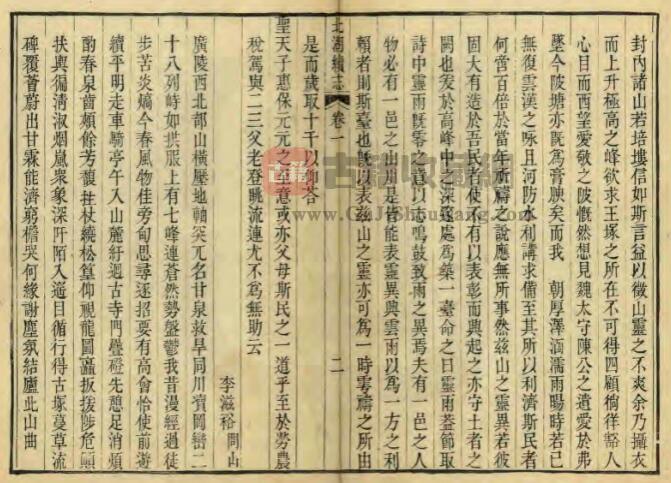 封内諸山若培塿信如斯言益以徵山靈之不爽余乃攝衣
而上升極高之峰欲求王琢之所在不可得四顧徜徉豁人
心目而西望愛敬之陂慨然想見魏太守陳公之遺愛於弗
墜今陂塘亦既為膏腴矣而我 朝厚澤涵濡雨暘時若已
無復雲漢之咏且河防水利講求備至其所以利濟斯民者
何啻百倍於當年所禱之說應無所事然兹山之靈異若彼
固大有造於吾民者使不有以表彰而興起之亦守土者之
闕也爰於高峰中之深邃處為築一臺命之曰靈雨葢節取
詩中靈雨既零之意以志鳴鼓致雨之異焉夫有一邑之人
物必有一邑之山川是皆能表靈異興雲雨以為一方之利
賴者則斯臺也既以表兹山之靈亦可為一時雩禱之所由
是而歲取十千以仰答
聖天子惠保元元之至意或亦父母斯民之一道乎至於勞農
稅駕與二三父老登眺流連尤不為無助云
李滋裕問山
廣陵西北部山橫壓地軸突兀名甘泉救旱同川賓岡巒二
十八列峙如拱服上有七峰連蒼然勢盤鬱我昔漫經過徒
步苦炎熇今春風物佳旁甸思尋逐招要有高會恰使前遊
續平明走車騎亭午入山麓紆迴古寺門疊磴先憩足消煩
酌春泉齒頰餘芳馥拄杖繞松篁仰視龍圖矗扳援陟危巔
扶輿徧清淑烟嵐衆象深阡陌入遥目循行得古塚蔓草流
碑覆薈蔚出甘霖能濟窮檐哭何緣謝塵氛結廬此山曲
北湖續志 卷一 二
古籍 古籍收藏网
GuJiShuCang.com